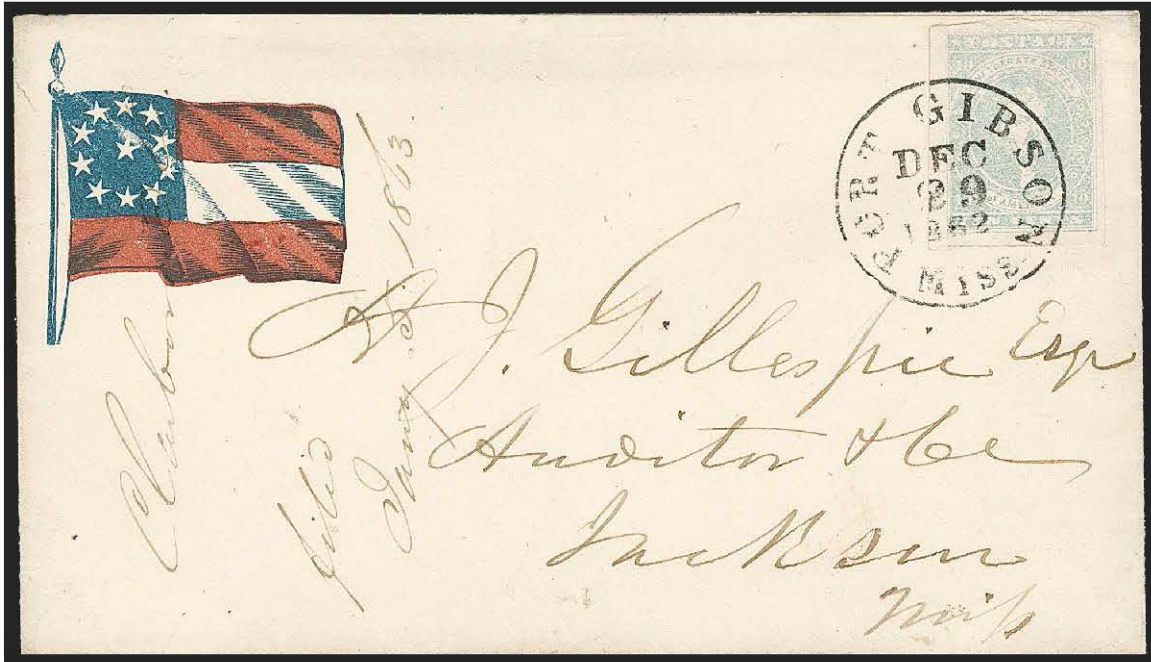 POSTAGE
PORT GIBSON
DEC
29
1862
MISS
A. J. Gillespie Esqr
Auditor &c
Jackson
Miss
Claiborne
filed
Jany 5th 1863.